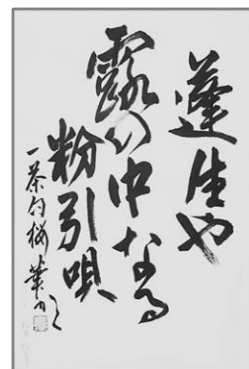 蓬生や
露の中なる
粉引唄
一茶句 梅華かく